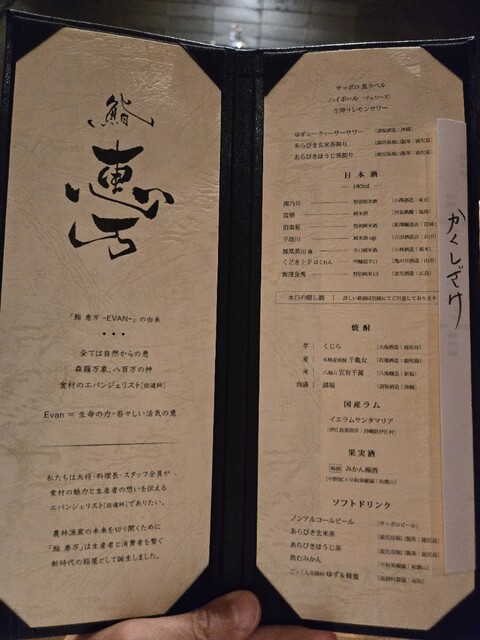 鮨
恵万
「鮨 恵万 -EVAN-」の由来
• • •
全ては自然からの恵
森羅万象、八百万の神
食材のエバンジェリスト[伝道師]
Evan = 生命の力・若々しい活気の意
私たちは大将・料理長・スタッフ全員が
食材の魅力と生産者の想いを伝える
エバンジェリスト[伝道師]でありたい。
農林漁業の未来を切り開くために
「鮨 恵万」は生産者と消費者を繋ぐ
新時代の鮨屋として誕生しました。
サッポロ黒ラベル
ハイボール
生搾りレモンサワー
ゆずシークヮーサーサワー
あらびき玄米茶割り
あらびきほうじ茶割り
日本酒
特別純米酒
純米酒
伯楽星 特別純米酒
手取川 純米酒
鳳凰美田
くどき上手
賀茂金秀 特別純米
本日の隠し酒 詳しい銘柄は別紙にてご用意しております
かくしざけ
焼酎
芋 くじら
麦 千亀女
米 宜有千萬
泡盛
国産ラム
イエラムサンタマリア
果実酒
梅酒 みかん梅酒
ソフトドリンク
ノンアルコールビール [サッポロビール]
あらびき玄米茶
あらびきほうじ茶
飲むみかん
ごっくん馬路村 ゆず&蜂蜜